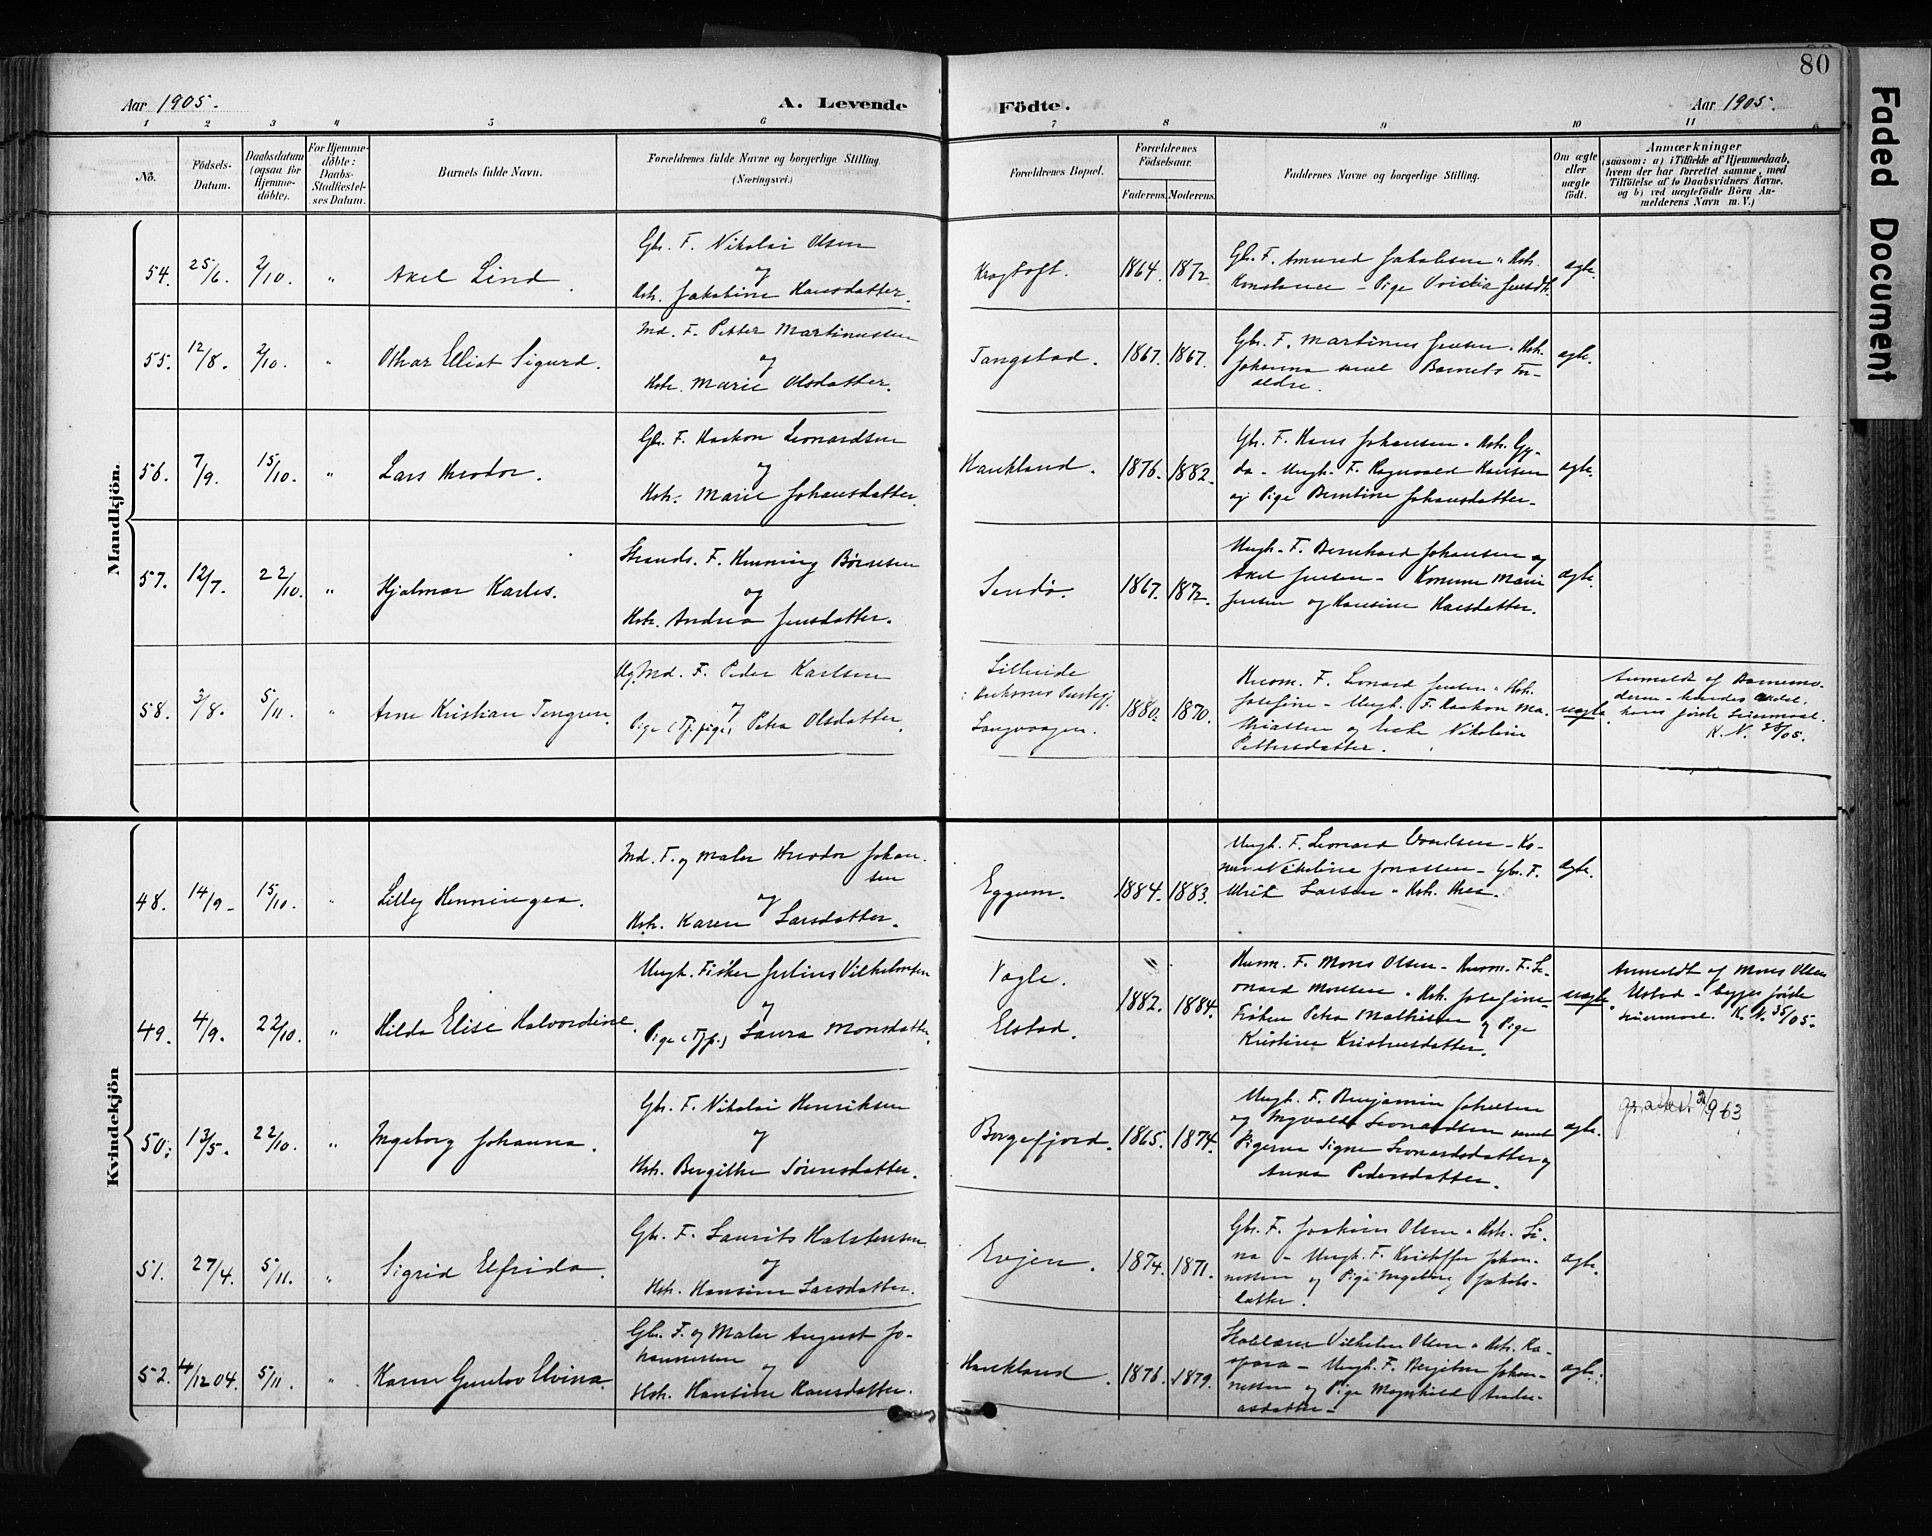 80
Faded Document
Aar 1905.
A. Levende
Födte.
Aar 1905.
1 2 3 4 5 6 7 8 9 10 11
No.
Födsels-
Datum.
Daabsdatum
(ogsaa for
Hjemme-
döbte).
For Hjemme-
döbte:
Daabs-
Stadfæstel-
ses Datum.
Barnets fulde Navn.
Forældrenes fulde Navne og borgerlige Stilling.
(Næringsvei.)
Forældrenes Bopæl.
Forældrenes
Födselsaar.
Faderens.
Moderens.
Faddernes Navne og borgerlige Stilling.
Om ægte
eller
uægte
födt.
Anmærkninger
(saasom: a) i Tilfælde af Hjemmedaab,
hvem der har forrettet samme, med
Tilföielse af to Daabsvidners Navne,
og b) ved uægtefödte Börn An-
melderens Navn m. V.)
Mandkjön.
54. 25/6. 2/10. " Axel Lind.
Gbr. F. Nikolai Olsen
og
Hstr. Jakobine Hansdatter.
1864. 1872
Gbr. F. Amund Jakobsen
Pige
ægte.
55. 12/8. 2/10. " Othar Elliot Sigurd.
Md. F. Petter Martinussen
og
Hstr. Marie Olsdatter.
Tangstad. 1867. 1867.
Gbr. F. Martinus Jensen " Hstr.
Johanna samt Barnets For-
ældre.
ægte.
56. 7/9. 15/10. " Lars Theodor.
Gbr. F. Haakon Leonardsen
og
Hstr. Marie Johansdatter.
Haukland. 1876. 1882.
Gbr. F. Hans Johansen " Hstr. Gy-
da - Ungk. F. Ragnvald Hansen
og Pige Berntine Johansdatter.
ægte.
57. 12/7. 22/10. " Hjalmar Karles.
Strands. F. Henning Børnsen
og
Hstr. Andrea Jensdatter.
Sendø. 1867. 1872.
Ungk. F. Bernhard Johansen og
Axel Jensen - Konerne Marie
Jensen og Hansine Hansdatter.
ægte.
58. 3/8. 5/11. " Arne Kristian Tengren.
Ug. Md. F. Peder Karlsen
og
Pige (Tj. pige) Petra Olsdatter.
Lilleeide
Langvaagen.
1880. 1870.
Husm. F. Leonard Jensen " Hstr.
Josefine - Ungk. F. Haakon Ma-
thiassen og Enke Nikoline
Pettersdatter.
uægte.
Anmeldt af Barnemo-
deren - hendes andet,
hans første Leiermaal.
K. N. 38/05.
Kvindekjön
48. 14/9. 15/10. " Lilly Henningea.
Md. F. og Maler Theodor Johan-
sen
og
Hstr. Karen Larsdatter.
Eggum. 1884. 1883.
Ungk. F. Leonard Arntsen - Ko-
nerne Nikoline Jonassen - Gbr. F.
Ulrik Larsen " Hstr. Thea.
ægte.
49. 4/9. 22/10. " Hilda Elise Halvordine.
Ungk. Fisker Julius Vilhelmsen
og
Pige (Tjp.) Laura Monsdatter.
Vagle.
Elstad.
1882. 1884.
Husm. F. Mons Olsen - Husm. F. Le-
onard Monsen " Hstr. Josefine -
Frøken Petra Mathisen og Pige
Kristine Kristensdatter.
uægte.
Anmeldt af Mons Olsen
Ustad - begges første
Leiermaal. K. N. 35/05.
50. 13/5. 22/10. " Ingeborg Johanna.
Gbr. F. Nikolai Henriksen
og
Hstr. Bergithe Sørensdatter.
Borgefjord. 1865. 1874.
Ungk. F. Benjamin Johnsen
og Ingvald Leonardsen samt
Pigerne Signe Leonardsdatter og
Anna Pedersdatter.
ægte.
51. 27/4. 5/11. " Sigrid Elfrida.
Gbr. F. Laurits Halstensen
og
Hstr. Hansine Larsdatter.
Evjen. 1874. 1871.
Gbr. F. Joakim Olsen " Hstr. Li-
na - Ungk. F. Kristoffer Johan-
nessen og Pige Ingeborg Jakobs-
datter.
ægte.
52. 4/12 04. 5/11. " Karen Gunelov Elvina.
Gbr. F. og Maler August Jo-
hannessen
og
Hstr. Hansine Hansdatter.
Haukland. 1876. 1879.
Vilhelm Olsen " Hstr. Ka-
spara - Ungk. F. Johan-
nessen og Pige Magnhild Andre-
asdatter.
ægte.